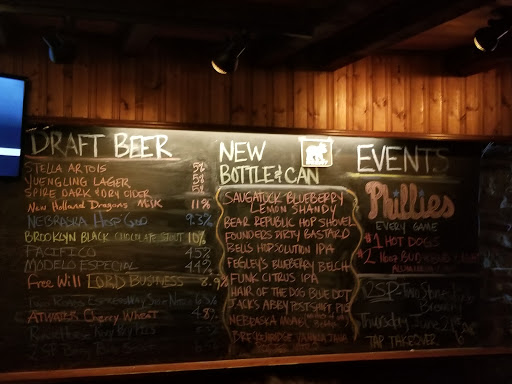 DRAFT BEER
STELLA ARTOIS 5%
YUENGLING LAGER 5%
SPIRE DARK & DRY CIDER 5%
New Holland Dragons Milk 11%
NEBRASKA HOP GOD 9.3%
BROOKLYN BLACK CHOCOLATE STOUT 10%
PACIFICO 4.5%
MODELO ESPECIAL 4.4%
Free Will LORD BUSINESS 8.9%
ATWATER Cherry Wheat 4.8%
NEW
BOTTLE & CAN
SAUGATUCK BLUEBERRY
LEMON SHANDY
BEAR REPUBLIC HOP SHOVEL
FOUNDERS DIRTY BASTARD
BELLS HOPSOLUTION IPA
FEGLEY'S BLUEBERRY BELCH
FUNK CITRUS IPA
HAIR OF THE DOG BLUE DOT
JACK'S ABBY
NEBRASKA
EVENTS
Phillies
EVERY GAME
$1 HOT DOGS
$2
2SP
Thursday, June
TAP TAKEOVER